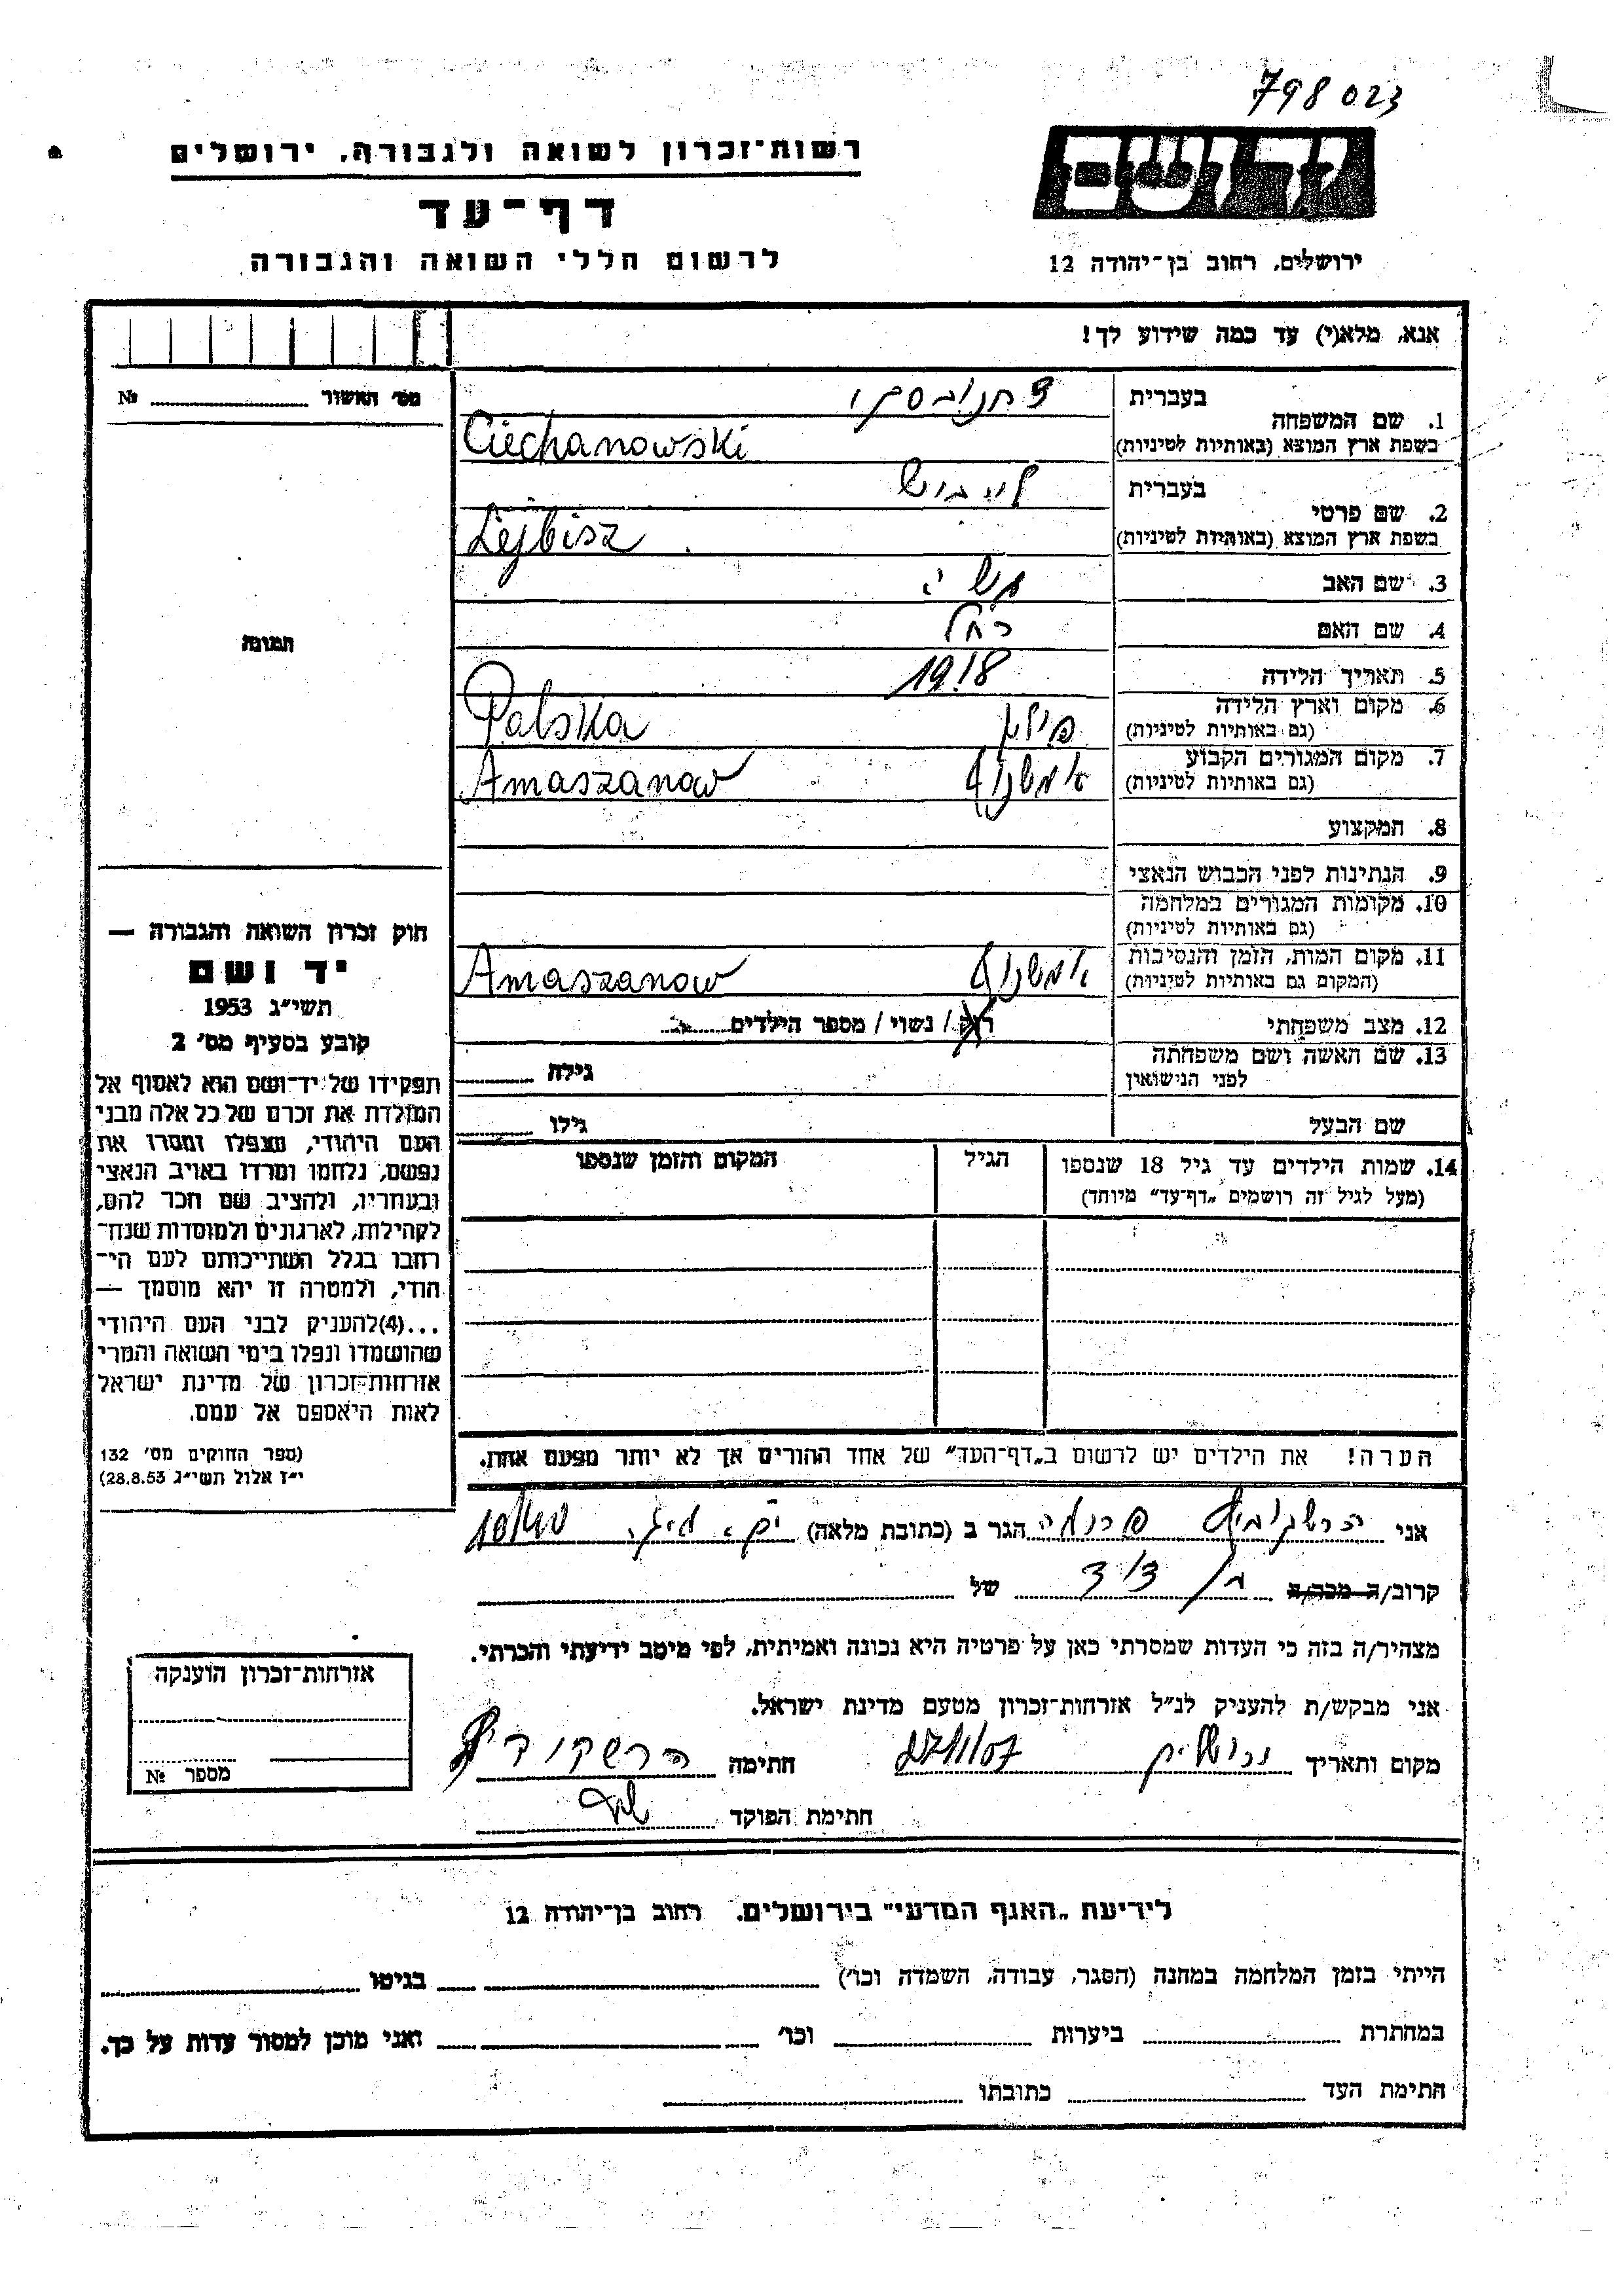 798023
רשות־זכרון לשואה ולגבורה, ירושלים
יד ושם
דף־עד
לרשום חללי השואה והגבורה
ירושלים, רחוב בן־יהודה 12
אנא, מלא(י) עד כמה שידוע לך!
מס׳ האשור № 
1. שם המשפחה בעברית
בשפת ארץ המוצא (באותיות לטיניות) Ciechanowski
2. שם פרטי בעברית לייביש
בשפת ארץ המוצא (באותיות לטיניות) Lejbisz
3. שם האב
4. שם האם רחל
5. תאריך הלידה 1918
6. מקום וארץ הלידה
(גם באותיות לטיניות) פולין Polska
7. מקום המגורים הקבוע
(גם באותיות לטיניות) אמשנוב Amaszanow
8. המקצוע
9. הנתינות לפני הכבוש הנאצי
10. מקומות המגורים במלחמה
(גם באותיות לטיניות)
11. מקום המות, הזמן והנסיבות
(המקום גם באותיות לטיניות) אמשנוב Amaszanow
12. מצב משפחתי רווק / נשוי / מספר הילדים
13. שם האשה ושם משפחתה
לפני הנישואין גילה
שם הבעל גילו
14. שמות הילדים עד גיל 18 שנספו הגיל המקום והזמן שנספו
(מעל לגיל זה רושמים „דף־עד״ מיוחד)
הערה! את הילדים יש לרשום ב„דף־העד״ של אחד ההורים אך לא יותר מפעם אחת.
תמונה
חוק זכרון השואה והגבורה —
יד ושם
תשי״ג 1953
קובע בסעיף מס׳ 2
תפקידו של יד־ושם הוא לאסוף אל
המולדת את זכרם של כל אלה מבני
העם היהודי, שנפלו ומסרו את
נפשם, נלחמו ומרדו באויב הנאצי
ובעוזריו, ולהציב שם וזכר להם,
לקהילות, לארגונים ולמוסדות שנח־
רבו בגלל השתייכותם לעם הי־
הודי, ולמטרה זו יהא מוסמך —
...(4)להעניק לבני העם היהודי
שהושמדו ונפלו בימי השואה והמרי
אזרחות־זכרון של מדינת ישראל
לאות היאספם אל עמם.
(ספר החוקים מס׳ 132
י״ז אלול תשי״ג 28.8.53)
אני הגר ב (כתובת מלאה) 10/40
קרוב/ה מכר/ה בן דוד של
מצהיר/ה בזה כי העדות שמסרתי כאן על פרטיה היא נכונה ואמיתית, לפי מיטב ידיעתי והכרתי.
אני מבקש/ת להעניק לנ״ל אזרחות־זכרון מטעם מדינת ישראל.
מקום ותאריך ירושלים חתימה
חתימת הפוקד
אזרחות־זכרון הוענקה
מספר №
לידיעת „האגף המדעי״ בירושלים, רחוב בן־יהודה 12
הייתי בזמן המלחמה במחנה (הסגר, עבודה, השמדה וכו׳) בגיטו
במחתרת ביערות וכו׳ ואני מוכן למסור עדות על כך.
חתימת העד כתובתו